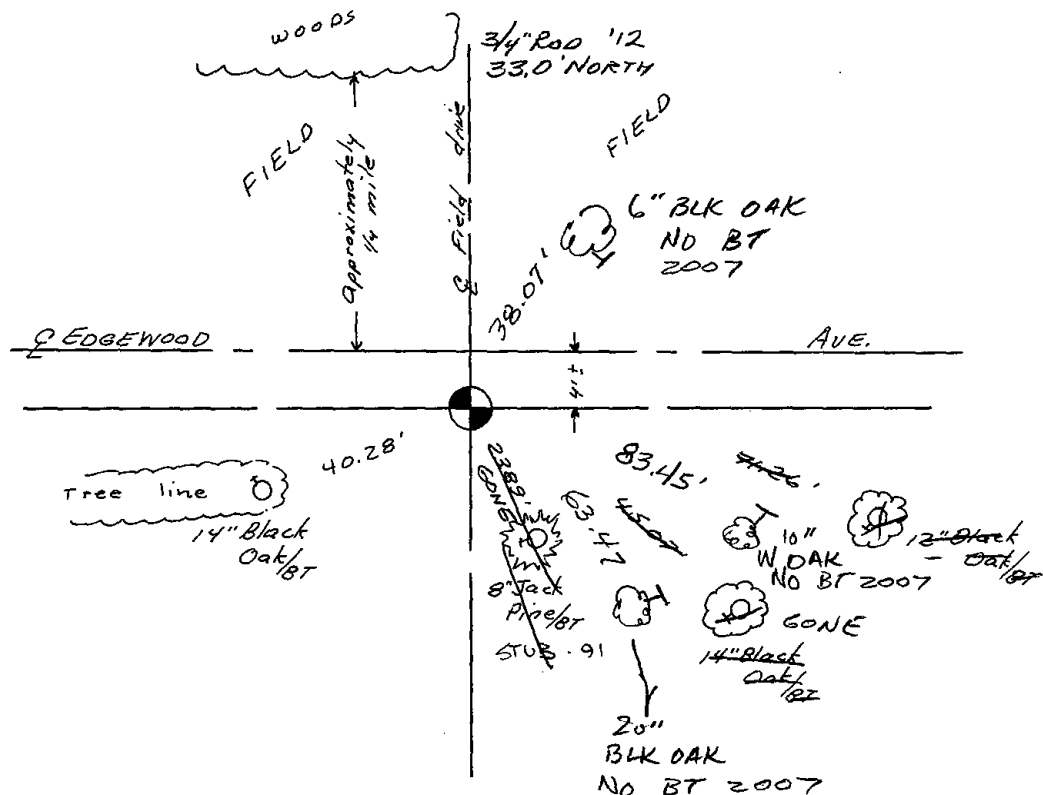 WOODS
3/4" ROD '12
33.0' NORTH
FIELD
Approximately
1/4 mile
℄ Field drive
FIELD
6" BLK OAK
NO BT
2007
38.07'
℄ EDGEWOOD
AVE.
4'±
40.28'
Tree line
14" Black
Oak/BT
23.89'
GONE
8" Jack
Pine/BT
STUB - 91
63.47
45.07
83.45'
10"
W OAK
NO BT 2007
12" Black
Oak/BT
GONE
14" Black
Oak/BT
20"
BLK OAK
NO BT 2007